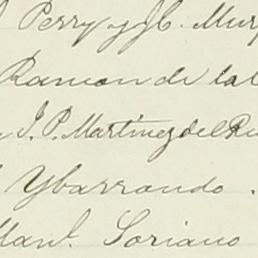 Perry y J.C.
Ramon de la
J. P. Martinez del
Ybarrondo.
Man.l Soriano